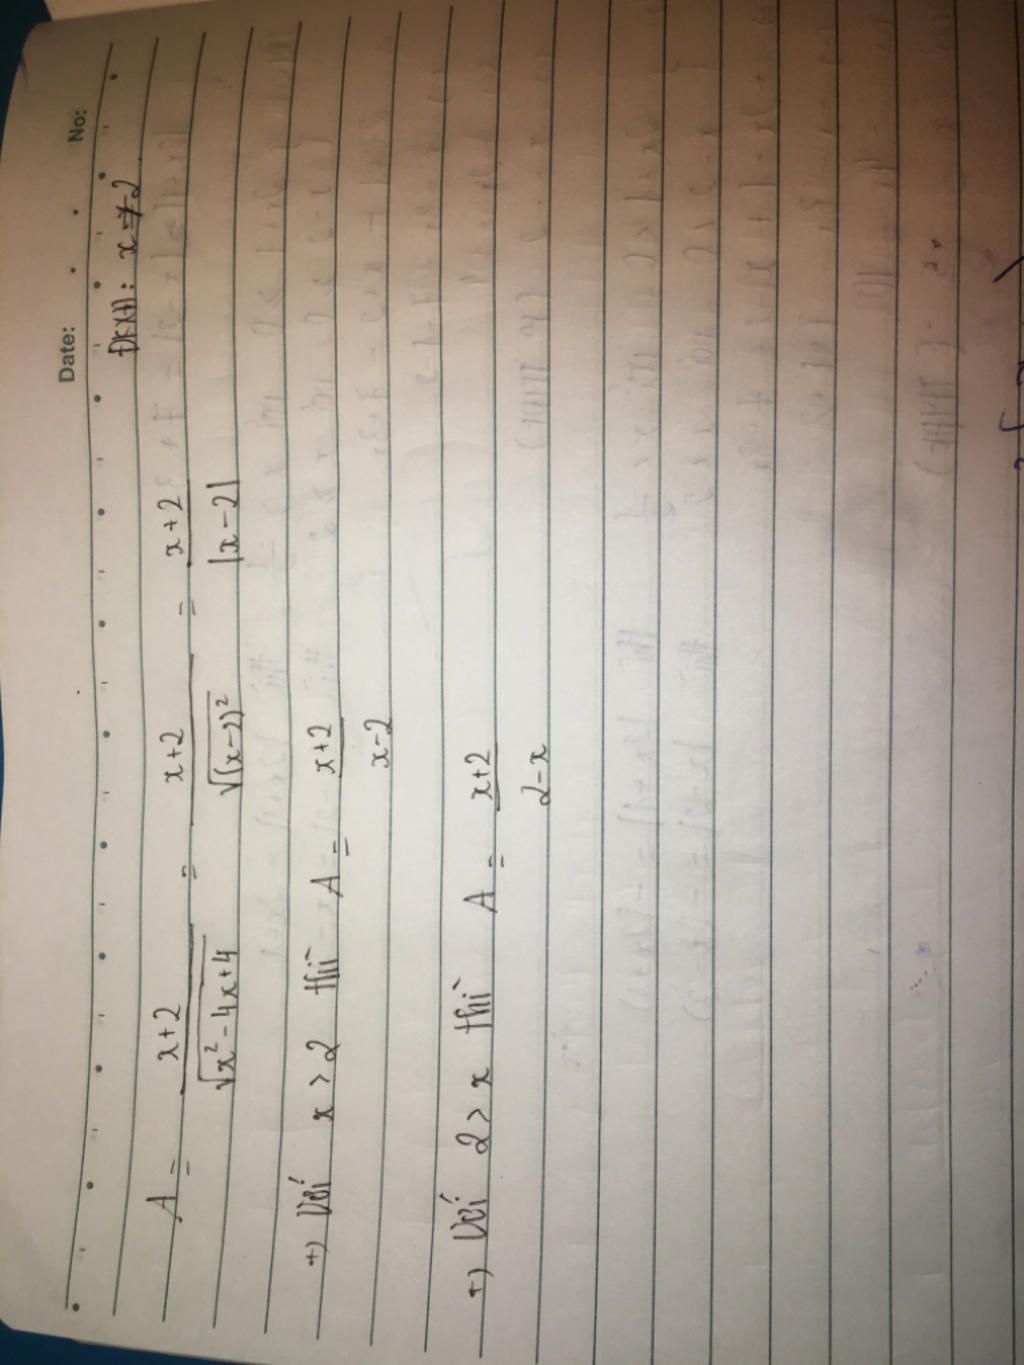 Date: No:
ĐKXĐ: x ≠ 2
A = x+2 / √(x² - 4x + 4) = x+2 / √((x-2)²) = x+2 / |x-2|
+) Với x > 2 thì A = x+2 / x-2
+) Với 2 > x thì A = x+2 / 2-x